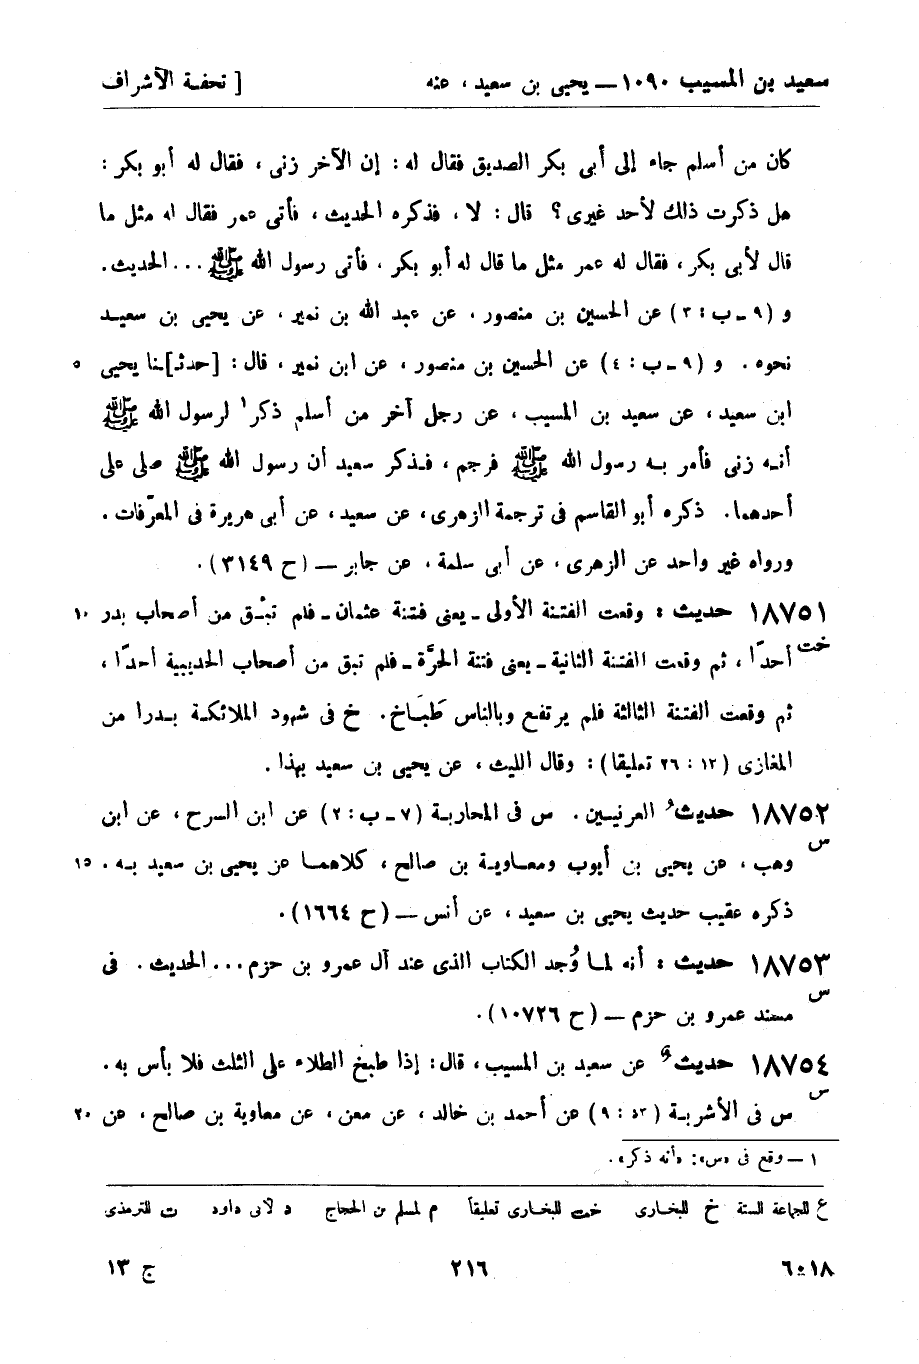 سعيد بن المسيب ١٠٩٠ — يحيى بن سعيد ، عنه [ تحفة الأشراف
كان من أسلم جاء إلى أبى بكر الصديق فقال له : إن الآخر زنى ، فقال له أبو بكر :
هل ذكرت ذلك لأحد غيرى ؟ قال : لا ، فذكره الحديث ، فأتى عمر فقال له مثل ما
قال لأبى بكر ، فقال له عمر مثل ما قال له أبو بكر ، فأتى رسول الله ﷺ ... الحديث .
و ( ٩ ـ ب : ٣ ) عن الحسين بن منصور ، عن عبد الله بن نمير ، عن يحيى بن سعيد
نحوه . و ( ٩ ـ ب : ٤ ) عن الحسين بن منصور ، عن ابن نمير ، قال : [حدثـ]ـنا يحيى ٥
ابن سعيد ، عن سعيد بن المسيب ، عن رجل آخر من أسلم ذكر ١ لرسول الله ﷺ
أنه زنى فأمر به رسول الله ﷺ فرجم ، فذكر سعيد أن رسول الله ﷺ صلى على
أحدهما . ذكره أبو القاسم فى ترجمة الزهرى ، عن سعيد ، عن أبى هريرة فى المعرّفات .
ورواه غير واحد عن الزهرى ، عن أبى سلمة ، عن جابر — ( ح ٣١٤٩ ) .
١٨٧٥١ حديث : وقعت الفتنة الأولى ـ يعنى فتنة عثمان ـ فلم تبْق من أصحاب بدر ١٠
خت أحدًا ، ثم وقعت الفتنة الثانية ـ يعنى فتنة الحرَّة ـ فلم تبق من أصحاب الحديبية أحدًا ،
ثم وقعت الفتنة الثالثة فلم يرتفع وبالناس طَبَاخ . خ فى شهود الملائكة بدرا من
المغازى ( ١٢ : ٢٦ تعليقا ) : وقال الليث ، عن يحيى بن سعيد بهذا .
١٨٧٥٢ حديثُ العرنيين . س فى المحاربة ( ٧ ـ ب : ٢ ) عن ابن السرح ، عن ابن
س وهب ، عن يحيى بن أيوب ومعاوية بن صالح ، كلاهما عن يحيى بن سعيد به . ١٥
ذكره عقيب حديث يحيى بن سعيد ، عن أنس — ( ح ١٦٦٤ ) .
١٨٧٥٣ حديث : أنه لما وُجد الكتاب الذى عند آل عمرو بن حزم ... الحديث . فى
س مسند عمرو بن حزم — ( ح ١٠٧٢٦ ) .
١٨٧٥٤ حديث عن سعيد بن المسيب ، قال : إذا طبخ الطلاء على الثلث فلا بأس به .
س س فى الأشربة ( ٥٣ : ٩ ) عن أحمد بن خالد ، عن معن ، عن معاوية بن صالح ، عن ٢٠
١ — وقع فى «س» : «أنه ذكر» .
ع للجماعة الستة خ للبخارى خت للبخارى تعليقاً م لمسلم بن الحجاج د لأبى داود ت للترمذى
٦٠١٨ ٢١٦ ج ١٣